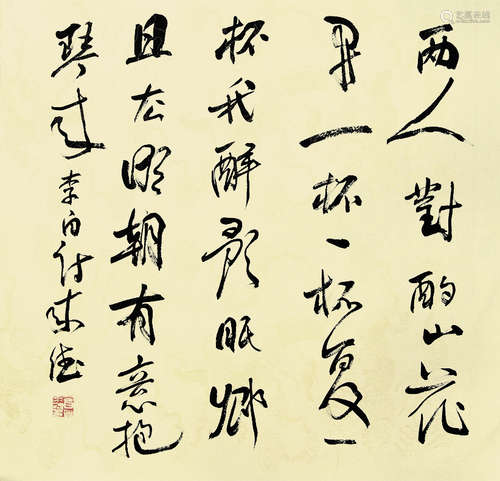 两人對酌山花
开一杯一杯复一
杯我醉欲眠卿
且去明朝有意抱
琴来李白诗